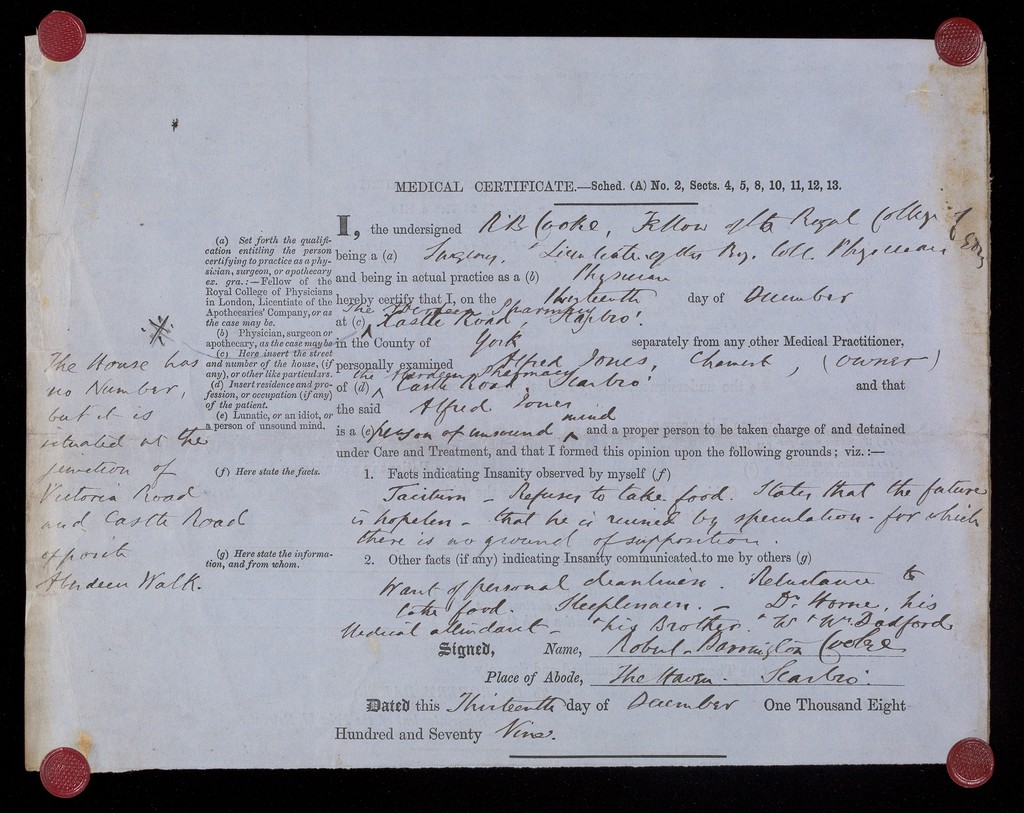 MEDICAL CERTIFICATE.—Sched. (A) No. 2, Sects. 4, 5, 8, 10, 11, 12, 13.
I, the undersigned RB Cooke, Fellow of the Royal College of
being a (a) Surgeons, & Licentiate of the Roy. Coll. Physicians
and being in actual practice as a (b) Physician
hereby certify that I, on the Thirteenth day of December
The Aberdeen Pharmacy
at (c) Castle Road, Scarbro'.
in the County of York separately from any other Medical Practitioner,
personally examined Alfred Jones, Chemist, (owner)
the Aberdeen Pharmacy
of (d) Castle Road, Scarbro'. and that
the said Alfred Jones
mind
is a (e) person of unsound and a proper person to be taken charge of and detained
under Care and Treatment, and that I formed this opinion upon the following grounds; viz.:—
1. Facts indicating Insanity observed by myself (f)
Taciturn - Refuses to take food. States that the future
is hopeless - that he is ruined by speculation - for which
there is no ground of supposition.
2. Other facts (if any) indicating Insanity communicated to me by others (g)
Want of personal cleanliness. Reluctance to
take food. Sleeplessness. - Dr. Horne, his
Medical attendant - & his Brother. & Mr & Mrs. Dadford
Signed, Name, Robert Barrington Cooke
Place of Abode, The Haven. Scarbro'.
Dated this Thirteenth day of December One Thousand Eight
Hundred and Seventy Nine.
(a) Set forth the qualifi-
cation entitling the person
certifying to practice as a phy-
sician, surgeon, or apothecary
ex. gra.:—Fellow of the
Royal College of Physicians
in London, Licentiate of the
Apothecaries' Company, or as
the case may be.
(b) Physician, surgeon or
apothecary, as the case may be
(c) Here insert the street
and number of the house, (if
any), or other like particulars.
(d) Insert residence and pro-
fession, or occupation (if any)
of the patient.
(e) Lunatic, or an idiot, or
a person of unsound mind.
(f) Here state the facts.
(g) Here state the informa-
tion, and from whom.
The House has
no Number,
but it is
situated at the
junction of
Victoria Road
and Castle Road
opposite
Aberdeen Walk.